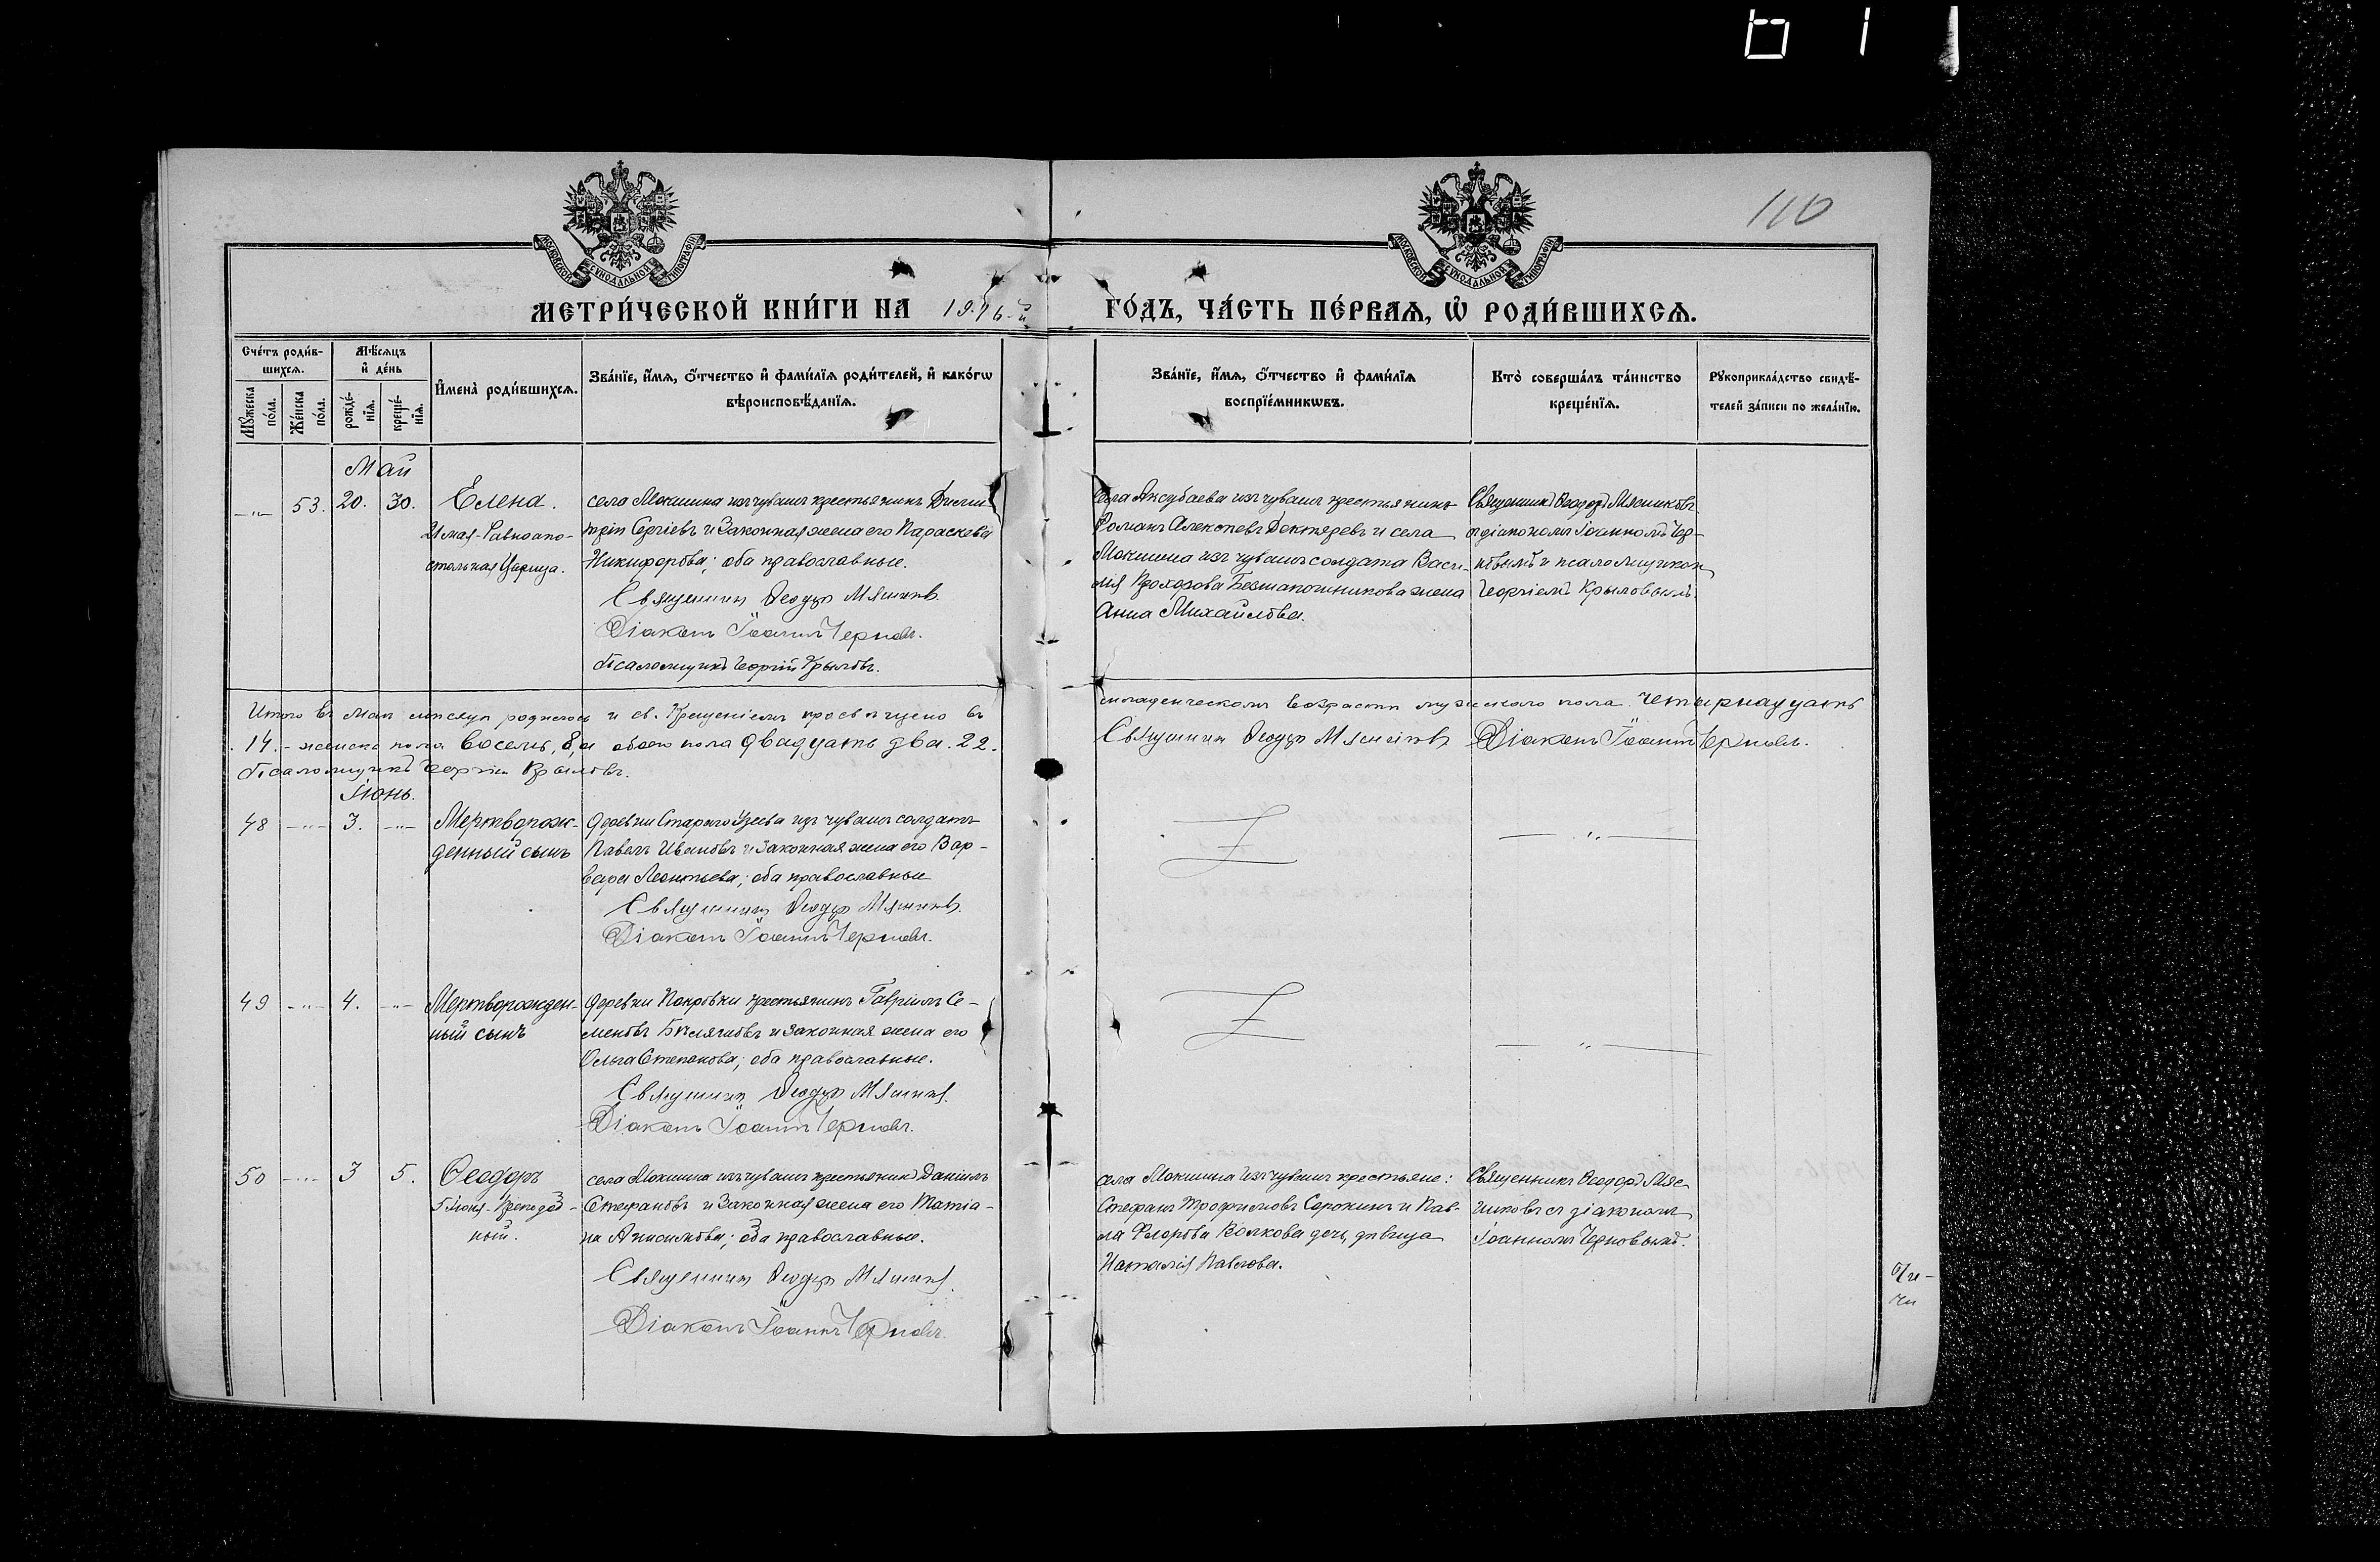 110
МОСКОВСКОЙ СѴНОДАЛЬНОЙ ТИПОГРАФІИ
МОСКОВСКОЙ СѴНОДАЛЬНОЙ ТИПОГРАФІИ
МЕТРИ́ЧЕСКОЙ КНИ́ГИ НА 1916-й ГО́ДЪ, ЧА́СТЬ ПЕ́РВАѦ, Ѡ҆ РОДИ́ВШИХСѦ.
Сче́тъ роди́в-
шихсѧ.
Мꙋ́жеска по́ла.
Же́нска по́ла.
Мѣ́сѧцъ
и҆ де́нь
рожде́-
нїѧ.
креще́-
нїѧ.
И҆мена̀ роди́вшихсѧ.
Зва́нїе, и҆́мѧ, ѻ҆́тчество и҆ фами́лїѧ роди́телей, и҆ како́гѡ
вѣроисповѣ́данїѧ.
Зва́нїе, и҆́мѧ, ѻ҆́тчество и҆ фами́лїѧ
воспрїе́мникѡвъ.
Кто̀ соверша́лъ та́инство
креще́нїѧ.
Рꙋкоприкла́дство свидѣ́-
телей за́писи по жела́нїю.
Май
-"- 53. 20. 30.
Елена.
21 мая - Равноапо-
стольная Царица.
села Мокшина изъ чувашъ крестьянинъ Дими-
трій Сергіевъ и законная жена его Параскева
Никифорова; оба православные.
Священникъ Ѳеодоръ Мясниковъ
Діаконъ Іоаннъ Черновъ.
Псаломщикъ Георгій Крыловъ.
села Аксубаева изъ чувашъ крестьянинъ
Романъ Алексѣевъ Дектяревъ и села
Мокшина изъ чувашъ солдата Васи-
лія Прохорова Безшапошникова жена
Анна Михайлова.
Священникъ Ѳеодоръ Мясниковъ
съ діакономъ Іоанномъ Чер-
новымъ и псаломщикомъ
Георгіемъ Крыловымъ.
Итого въ маѣ мѣсяцѣ родилось и св. Крещеніемъ просвѣщено въ младенческомъ возрастѣ мужескаго пола четырнадцать
14. - женска пола восемь, 8, а обоего пола двадцать два. 22. Священникъ Ѳеодоръ Мясниковъ Діаконъ Іоаннъ Черновъ.
Псаломщикъ Георгій Крыловъ.
Іюнь.
48 -"- 3. -"-
Мертворож-
денный сынъ
деревни Стараго Узеева изъ чувашъ солдатъ
Павелъ Ивановъ и законная жена его Вар-
вара Леонтьева; оба православные
Священникъ Ѳеодоръ Мясниковъ.
Діаконъ Іоаннъ Черновъ.
-"-
49 -"- 4. -"-
Мертворожден-
ный сынъ
деревни Покровки крестьянинъ Гавріилъ Се-
меновъ и законная жена его
Ольга Степанова; оба православные.
Священникъ Ѳеодоръ Мясниковъ.
Діаконъ Іоаннъ Черновъ.
-"-
50 -"- 3 5.
Ѳеодоръ
5 іюня - Преподоб-
ный.
села Мокшина изъ чувашъ крестьянинъ Даніилъ
Стефановъ и законная жена его Татіа-
на Анисимова; оба православные.
Священникъ Ѳеодоръ Мясниковъ.
Діаконъ Іоаннъ Черновъ.
села Мокшина изъ чувашъ крестьяне:
Стефанъ Трофимовъ Сорокинъ и Пав-
ла Флорова Волкова дочь, дѣвица
Наталія Павлова.
Священникъ Ѳеодоръ Мяс-
никовъ съ діакономъ
Іоанномъ Черновымъ.